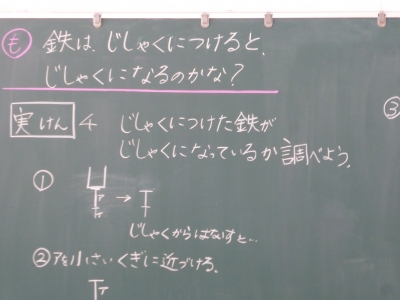 も 鉄は、じしゃくにつけると、
じしゃくになるのかな?
実けん 4 じしゃくにつけた鉄が
じしゃくになっているか調べよう。
③
①
ア
じしゃくからはなすと…
②アを小さいくぎに近づける。
ア